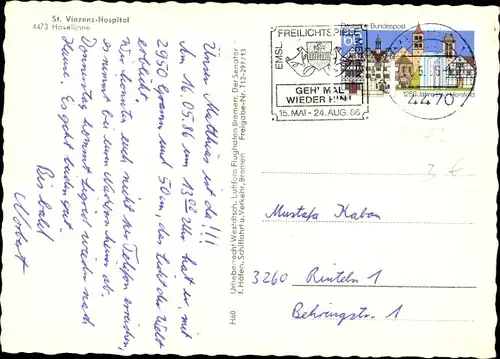 St. Vinzenz-Hospital
4473 Haselünne
Unser Matthias ist da!!!
Am 16.05.86 um 13 Uhr hat er, mit
2950 Gramm und 50 cm, das Licht der Welt
erblickt.
Wir konnten euch nicht per Telefon erreichen,
so nimmt bei
Donnerstag kommt Sigrid wieder nach
Hause. Es geht beiden gut.
Bis bald
Norbert
H60
Urheberrecht Westdtsch. Luftfoto Flughafen Bremen. Der Senator
f. Häfen, Schiffahrt u. Verkehr, Bremen Freigabe-Nr. T12-297/13
EMSL. FREILICHTSPIELE
GEH' MAL
WIEDER HIN!
15. MAI - 24. AUG. 86
Deutsche Bundespost
4470
Mustafa Kaban
3260 Rinteln 1
Behringstr. 1